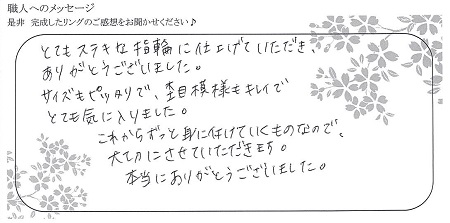 職人へのメッセージ
是非 完成したリングのご感想をお聞かせください♪
とてもステキな指輪に仕上げていただき、
ありがとうございました。
サイズもピッタリで、杢目模様もキレイで
とても気に入りました。
これからずっと身に付けていくものなので、
大切にさせていただきます。
本当にありがとうございました。